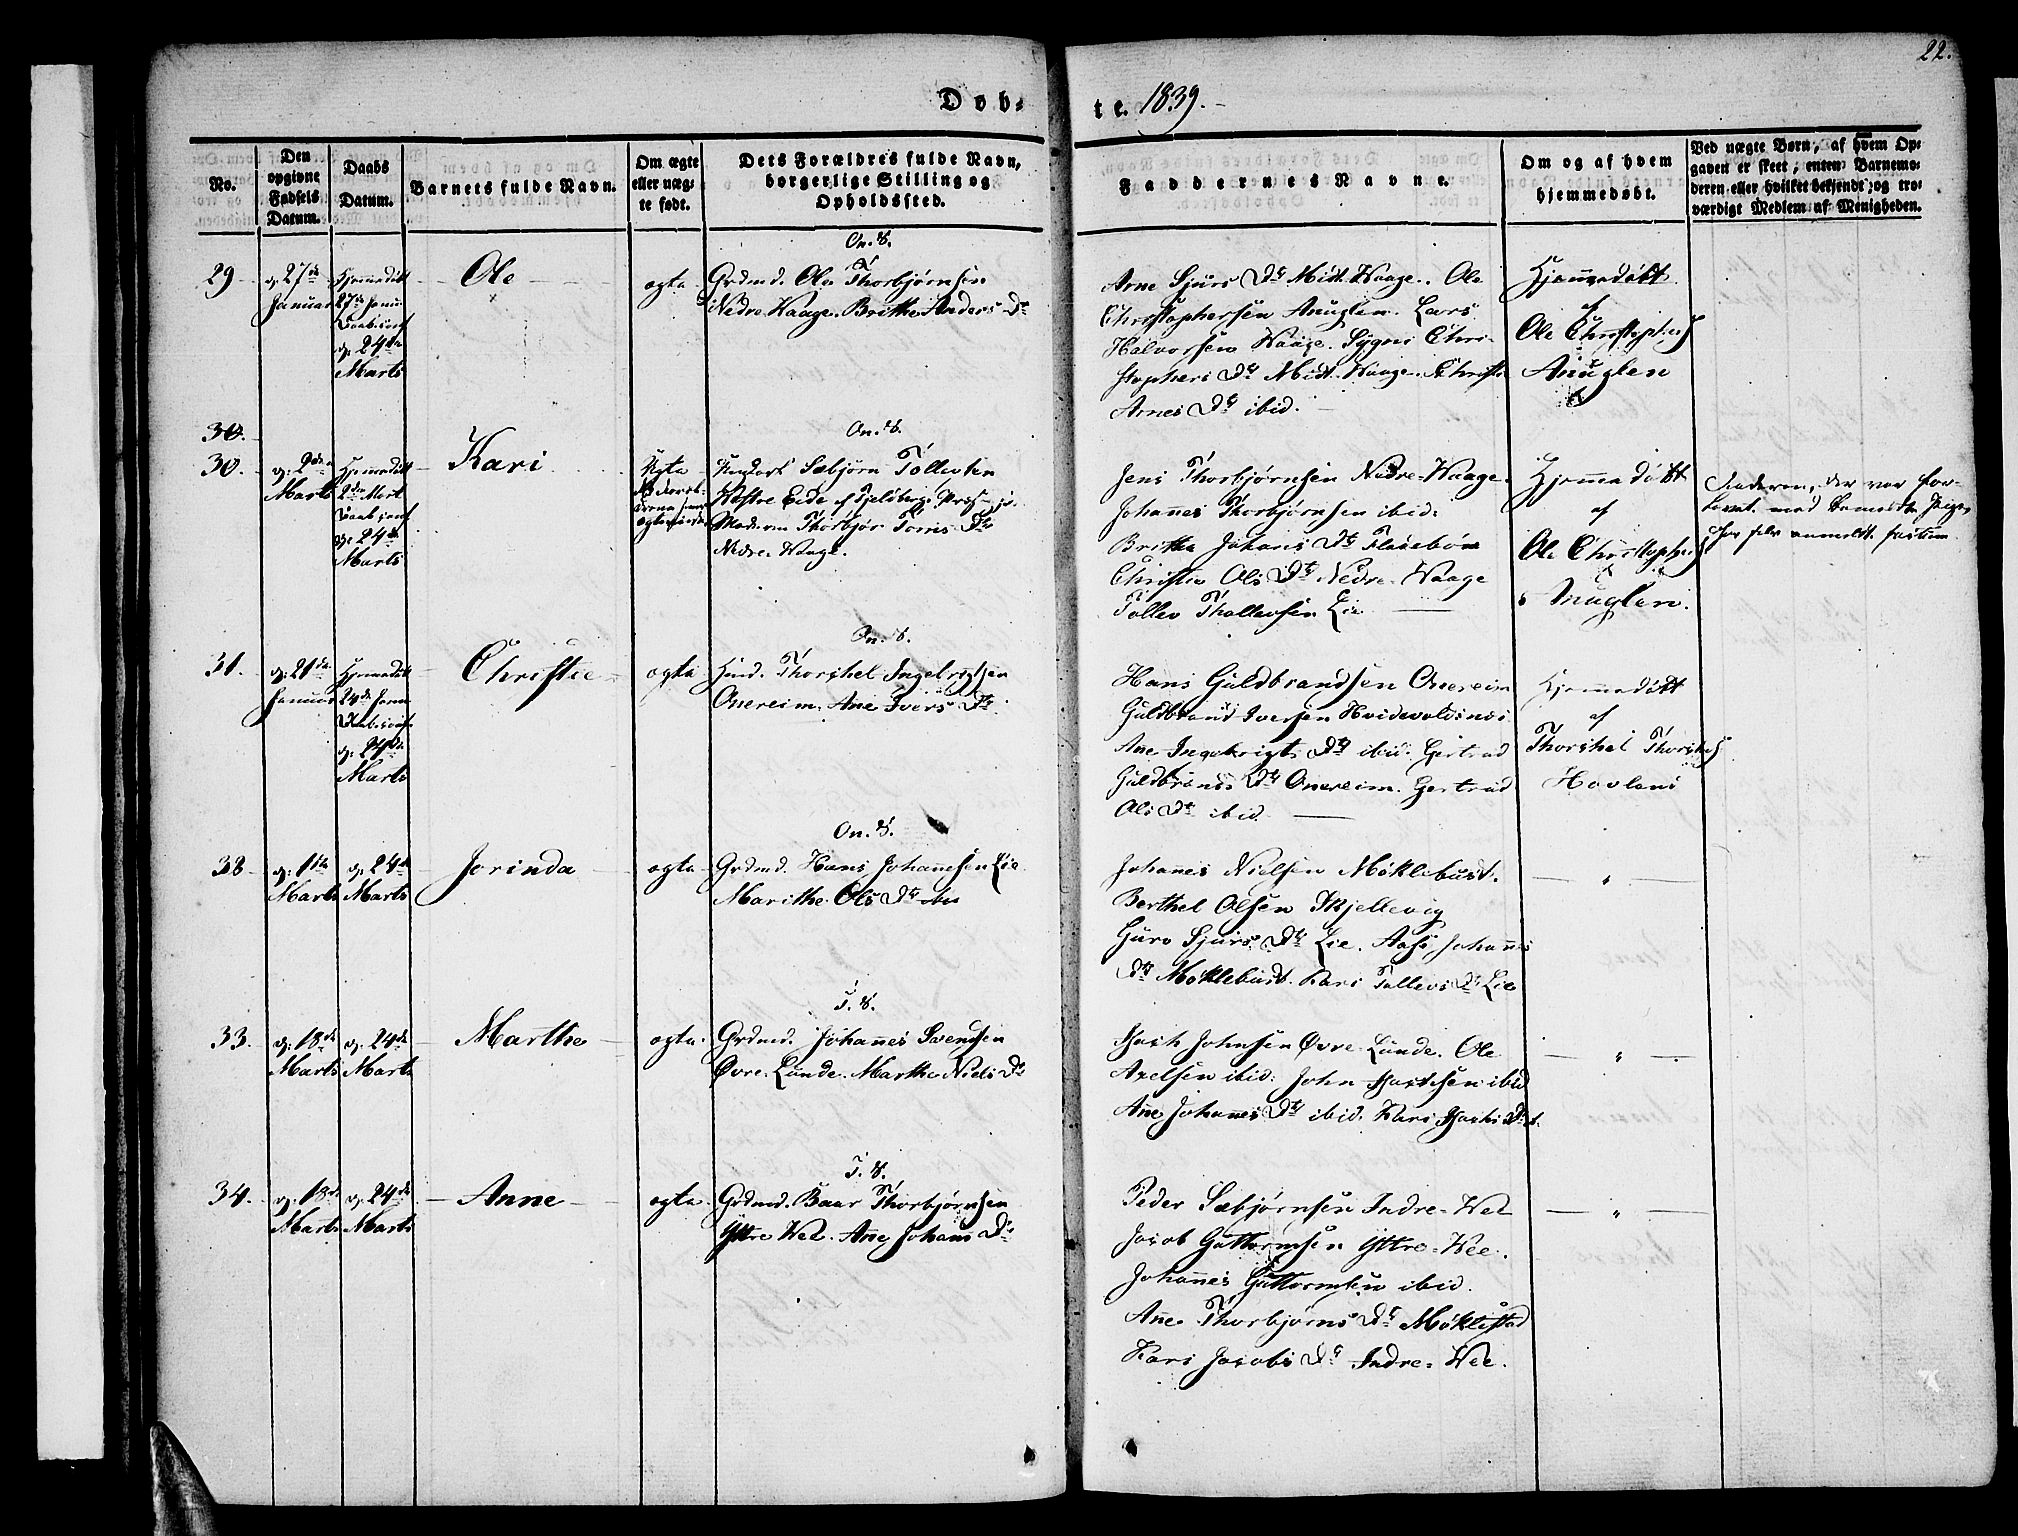 22.
Døb-
te. 1839.
No.
Den opgivne Fødsels Datum.
Daabs Datum.
Barnets fulde Navn.
Om ægte eller uægte født.
Dets Forældres fulde Navn, borgerlige Stilling og Opholdssted.
Faddernes Navne.
Om og af hvem hjemmedøbt.
Ved uægte Børn, af hvem Opgaven er skeet; enten Barnemoderen eller hvilket bekjendt, og troværdigt Medlem af Menigheden.
On. S.
29
d. 27de
Januar
Hjemmedøbt
27de Janu.
Daab.
d. 24de
Marts
Ole
ægte
Grdmd. Ole Thorbjørnsen
Nedre Waage. Brithe Anders Dtr
Arne Sjurs Dtr Midt-Waage. Ole
Christophersen Anuglen. Lars
Halvorsen Waage. Sygni Chri-
stophers Dtr Midt-Waage. Christi
Arnes Dtr ibid.
Hjemmedøbt
af
Ole Christophers
Anuglen
On. S.
30.
30.
d. 2den
Marts
Hjemmedøbt
2den Mart
Daab
d. 24de
Marts
Kari
Sæbjørn Tollevsen
Vestre Eide af Fjelberg
Moderen Thorbjør Tores Dtr
Nedre-Waage.
Jens Thorbjørnsen Nedre-Waage.
Johannes Thorbjørnsen ibid:
Brithe Johans Dtr
Christie Ols Dtr Nedre-Waage
Tollev Thollevsen Lie
Hjemmedøbt
af
Ole Christophers
Anuglen.
Faderen, der var
med
On. S.
31.
d. 21de
Januar
Hjemmedøbt
24de Janu
Daab
d. 24de
Marts
Christie
ægte
Thorchel Ingebrigtsen
Onereim. Ane Ivers Dtr
Hans Guldbrandsen Onereim
Guldbrand Iversen
Ane Ingebrigts Dtr ibid. Gertrud
Guldbrands Dtr Onereim. Gertrud
Ols Dtr ibid.
Hjemmedøbt
af
Thorchel Thorchels
Hovland
On. S.
32
d. 1ste
Marts
d. 24de
Marts
Jorinda
ægte
Grdmd. Hans Johannesen Lie
Marithe Ols Dtr ibid
Johannes Nielsen Møklebust.
Berthel Olsen Skjellevig
Guro Sjurs Dtr Lie. Aase Johannes
Dtr Møklebust. Kari Tollevs Dtr Lie
— " —
T. S.
33.
d. 18de
Marts
d. 24de
Marts
Marthe
ægte.
Grdmd. Johannes Svendsen
Øvre-Lunde. Marthe Niels Dtr
Johnsen Øvre-Lunde. Ole
Axelsen ibid: John ibid
Ane Johannes Dtr ibid. Kari
— " —
T. S.
34.
d. 18de
Marts
d. 24de
Marts
Anne
ægte.
Grdmd. Baar Thorbjørnsen
Yttre Wee. Ane Johans Dtr
Peder Sæbjørnsen Indre-Wee
Jacob Guttormsen Yttre-Wee.
Johannes Guttormsen ibid.
Ane Thorbjørns Dtr Møklestad
Kari Jacobs Dtr Indre-Wee.
— " —